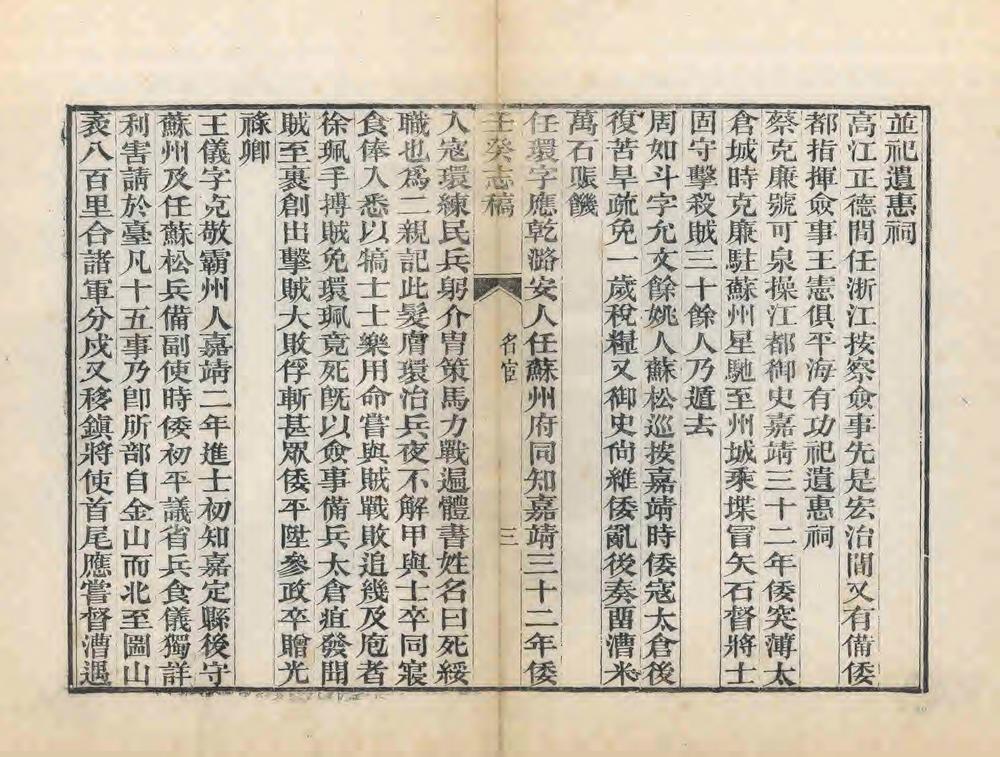 並祀遺惠祠
高江正德間任浙江按察僉事先是宏治間又有備倭
都指揮僉事王憲俱平海有功祀遺惠祠
蔡克廉號可泉操江都御史嘉靖三十二年倭突薄太
倉城時克廉駐蘇州星馳至州城乘堞冒矢石督將士
固守擊殺賊三十餘人乃遁去
周如斗字允文餘姚人蘇松巡按嘉靖時倭寇太倉後
復苦旱疏免一歲稅糧又御史尙維倭亂後奏畱漕米
萬石賑饑
任環字應乾潞安人任蘇州府同知嘉靖三十二年倭
壬癸志稿
名宦
三
入寇環練民兵躬介冑策馬力戰遍體書姓名曰死綏
職也爲二親記此髮膚環治兵夜不解甲與士卒同寢
食俸入悉以犒士士樂用命嘗與賊戰敗追幾及庖者
徐珮手搏賊免環珮竟死旣以僉事備兵太倉疽發聞
賊至裹創出擊賊大敗俘斬甚眾倭平陞參政卒贈光
祿卿
王儀字克敬霸州人嘉靖二年進士初知嘉定縣後守
蘇州及任蘇松兵備副使時倭初平議省兵食儀獨詳
利害請於臺凡十五事乃卽所部自金山而北至圖山
袤八百里合諸軍分戍又移鎭將使首尾應嘗督漕遇